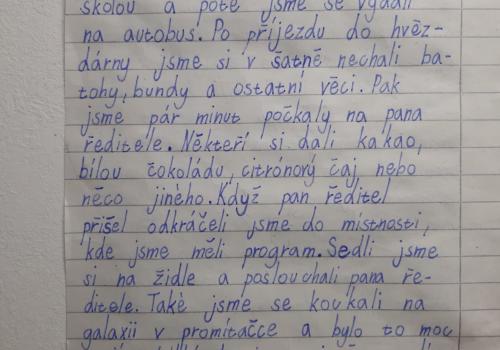 školou a poté jsme se vydali
na autobus. Po příjezdu do hvěz-
dárny jsme si v šatně nechali ba-
tohy, bundy a ostatní věci. Pak
jsme pár minut počkaly na pana
ředitele. Někteří si dali kakao,
bílou čokoládu, citrónový čaj nebo
něco jiného. Když pan ředitel
přišel odkráčeli jsme do místnosti,
kde jsme měli program. Sedli jsme
si na židle a poslouchali pana ře-
ditele. Také jsme se koukali na
galaxii v promítačce a bylo to moc